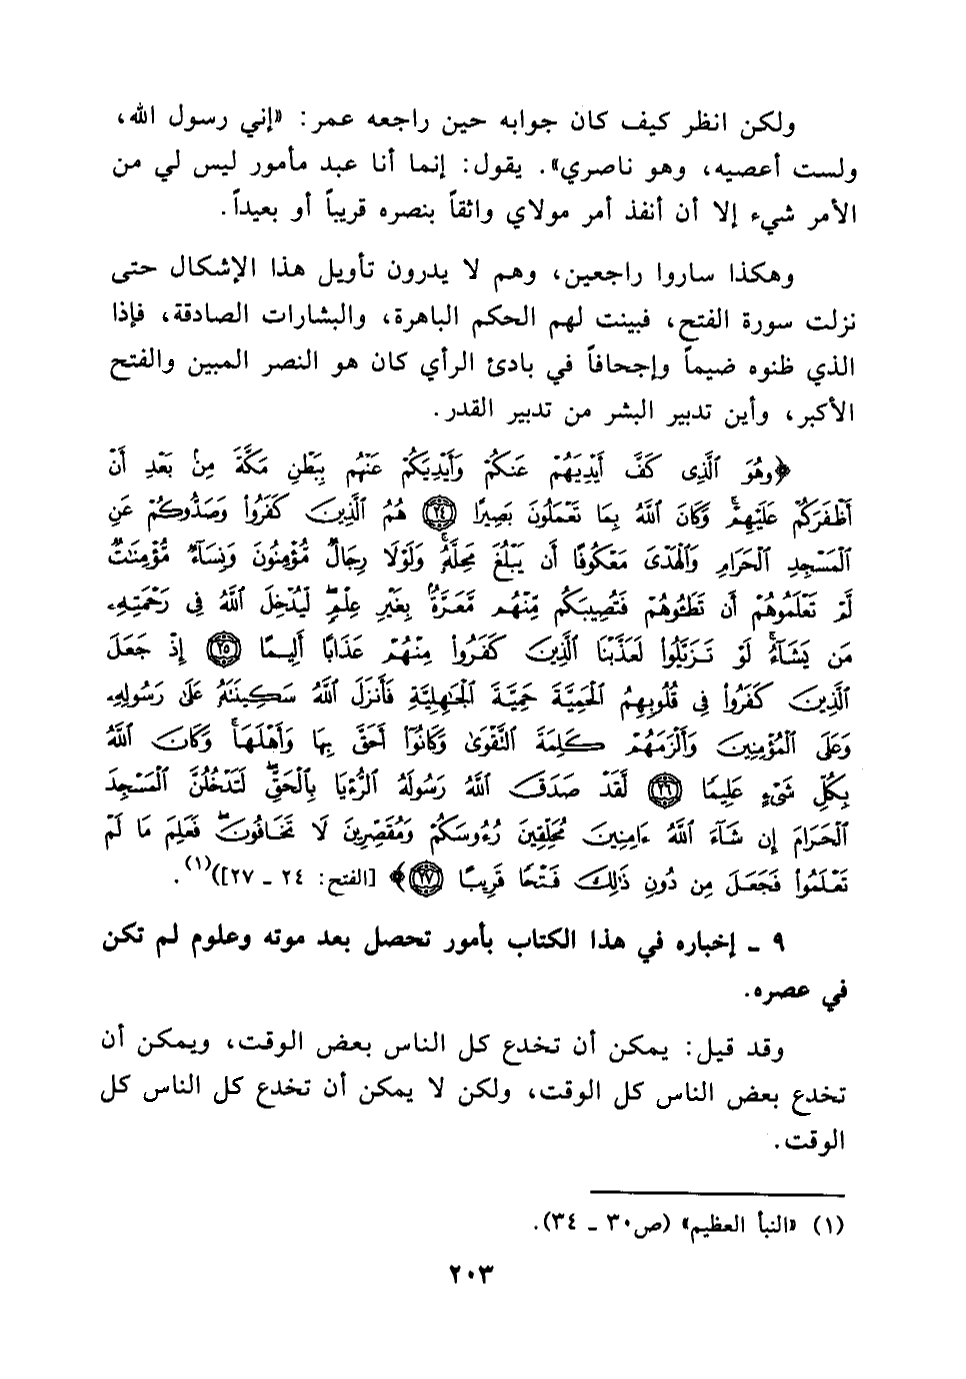 ولكن انظر كيف كان جوابه حين راجعه عمر: «إني رسول الله،
ولست أعصيه، وهو ناصري». يقول: إنما أنا عبد مأمور ليس لي من
الأمر شيء إلا أن أنفذ أمر مولاي واثقاً بنصره قريباً أو بعيداً.
وهكذا ساروا راجعين، وهم لا يدرون تأويل هذا الإشكال حتى
نزلت سورة الفتح، فبينت لهم الحكم الباهرة، والبشارات الصادقة، فإذا
الذي ظنوه ضيماً وإجحافاً في بادئ الرأي كان هو النصر المبين والفتح
الأكبر، وأين تدبير البشر من تدبير القدر.
﴿وَهُوَ ٱلَّذِى كَفَّ أَيْدِيَهُمْ عَنكُمْ وَأَيْدِيَكُمْ عَنْهُم بِبَطْنِ مَكَّةَ مِنۢ بَعْدِ أَنْ
أَظْفَرَكُمْ عَلَيْهِمْ ۚ وَكَانَ ٱللَّهُ بِمَا تَعْمَلُونَ بَصِيرًا ٢٤ هُمُ ٱلَّذِينَ كَفَرُوا۟ وَصَدُّوكُمْ عَنِ
ٱلْمَسْجِدِ ٱلْحَرَامِ وَٱلْهَدْىَ مَعْكُوفًا أَن يَبْلُغَ مَحِلَّهُۥ ۚ وَلَوْلَا رِجَالٌ مُّؤْمِنُونَ وَنِسَآءٌ مُّؤْمِنَٰتٌ
لَّمْ تَعْلَمُوهُمْ أَن تَطَـُٔوهُمْ فَتُصِيبَكُم مِّنْهُم مَّعَرَّةٌۢ بِغَيْرِ عِلْمٍ ۖ لِّيُدْخِلَ ٱللَّهُ فِى رَحْمَتِهِۦ
مَن يَشَآءُ ۚ لَوْ تَزَيَّلُوا۟ لَعَذَّبْنَا ٱلَّذِينَ كَفَرُوا۟ مِنْهُمْ عَذَابًا أَلِيمًا ٢٥ إِذْ جَعَلَ
ٱلَّذِينَ كَفَرُوا۟ فِى قُلُوبِهِمُ ٱلْحَمِيَّةَ حَمِيَّةَ ٱلْجَٰهِلِيَّةِ فَأَنزَلَ ٱللَّهُ سَكِينَتَهُۥ عَلَىٰ رَسُولِهِۦ
وَعَلَى ٱلْمُؤْمِنِينَ وَأَلْزَمَهُمْ كَلِمَةَ ٱلتَّقْوَىٰ وَكَانُوٓا۟ أَحَقَّ بِهَا وَأَهْلَهَا ۚ وَكَانَ ٱللَّهُ
بِكُلِّ شَىْءٍ عَلِيمًا ٢٦ لَّقَدْ صَدَقَ ٱللَّهُ رَسُولَهُ ٱلرُّءْيَا بِٱلْحَقِّ ۖ لَتَدْخُلُنَّ ٱلْمَسْجِدَ
ٱلْحَرَامَ إِن شَآءَ ٱللَّهُ ءَامِنِينَ مُحَلِّقِينَ رُءُوسَكُمْ وَمُقَصِّرِينَ لَا تَخَافُونَ ۖ فَعَلِمَ مَا لَمْ
تَعْلَمُوا۟ فَجَعَلَ مِن دُونِ ذَٰلِكَ فَتْحًا قَرِيبًا ٢٧﴾ [الفتح: ٢٤ ـ ٢٧])(١).
٩ ـ إخباره في هذا الكتاب بأمور تحصل بعد موته وعلوم لم تكن
في عصره.
وقد قيل: يمكن أن تخدع كل الناس بعض الوقت، ويمكن أن
تخدع بعض الناس كل الوقت، ولكن لا يمكن أن تخدع كل الناس كل
الوقت.
(١) «النبأ العظيم» (ص٣٠ ـ ٣٤).
٢٠٣